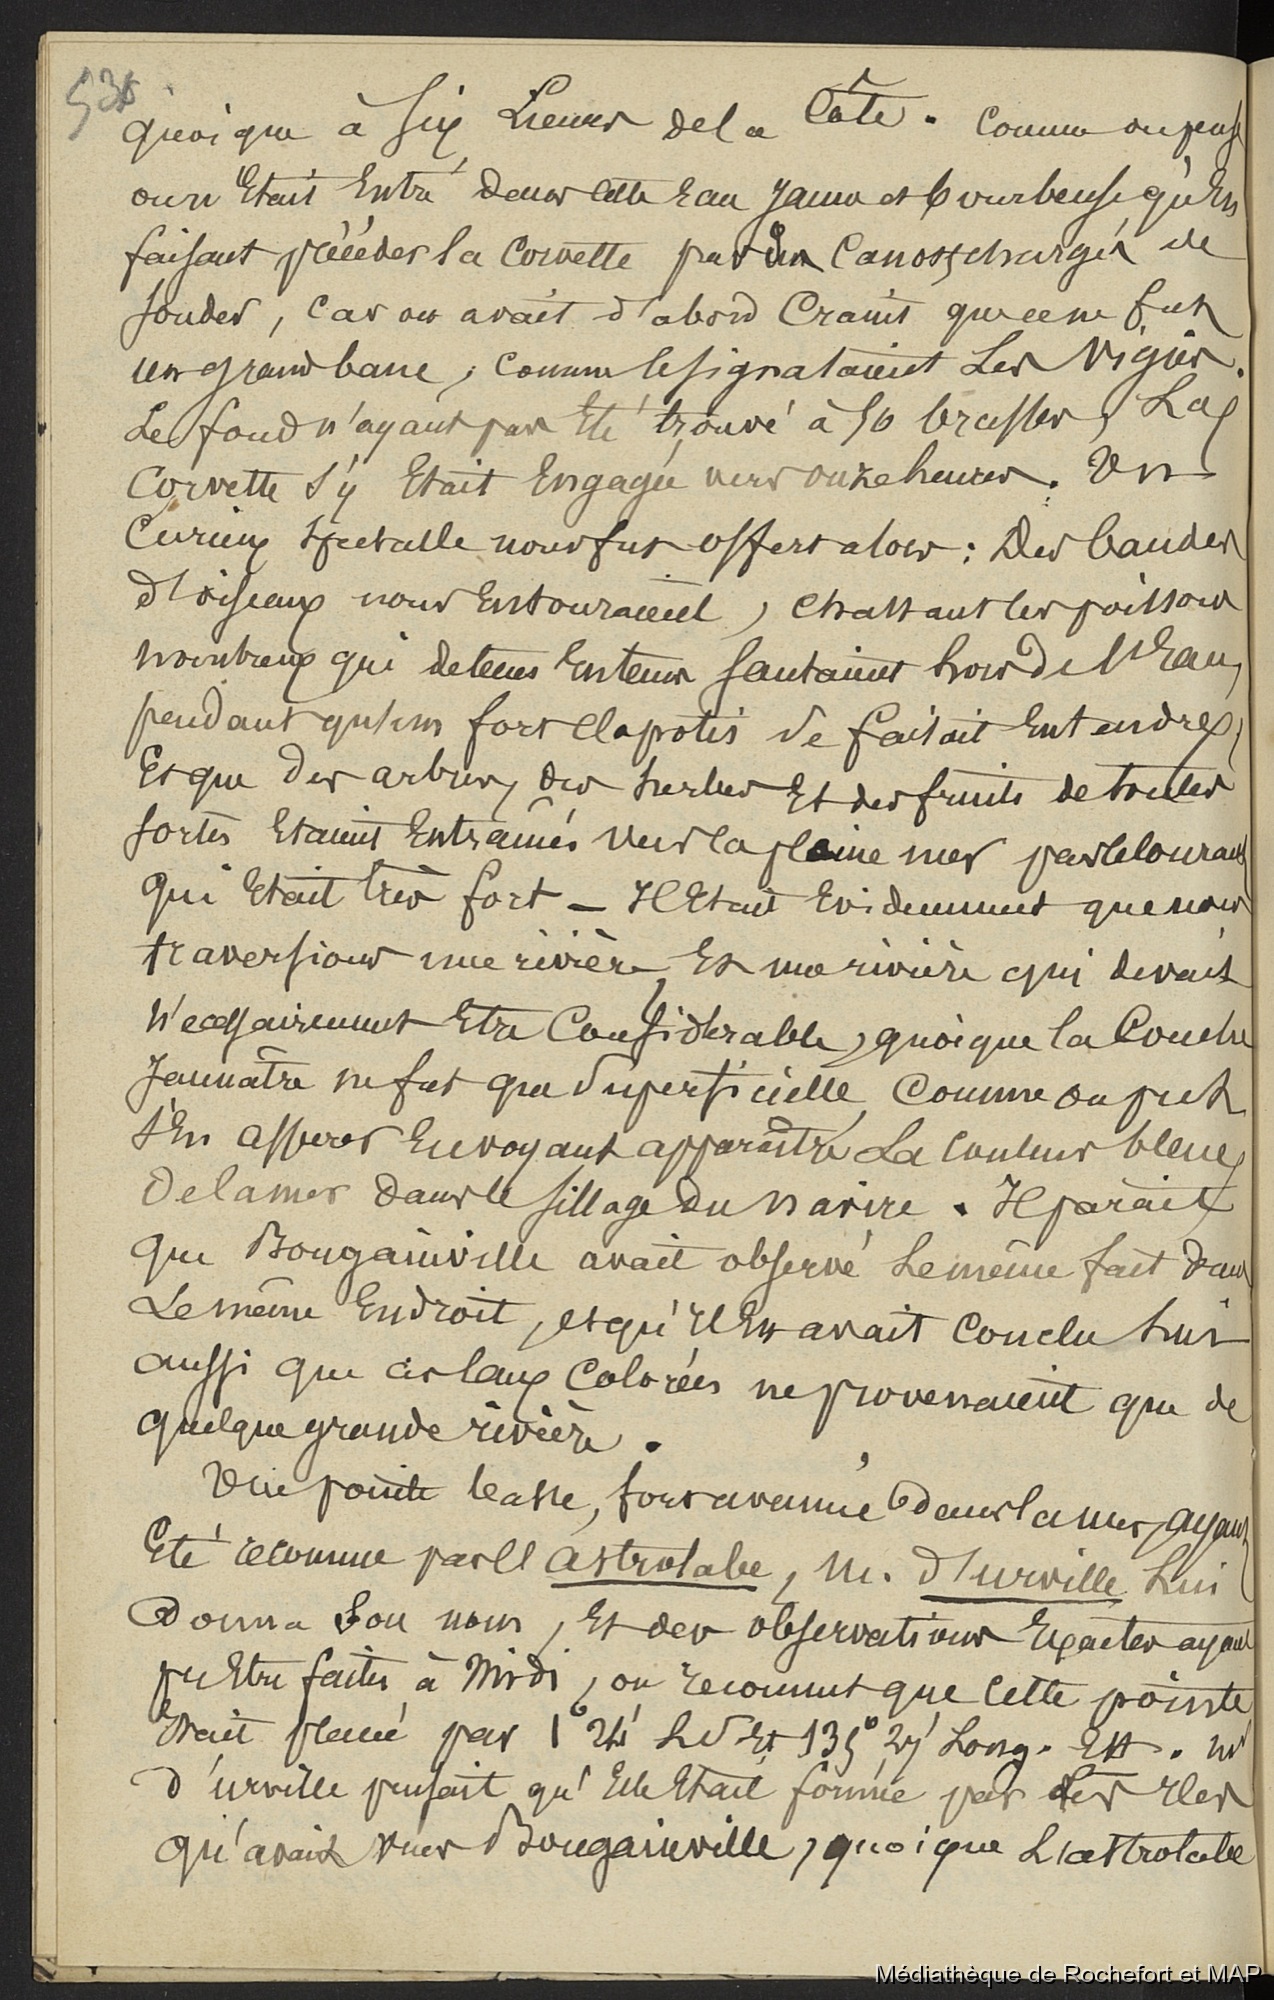 535
quoique à Six Lieues de la Côte. Comme on pense
on n'Etait Entré dans cette Eau jaune et bourbeuse qu'En
faisant précéder la Corvette par un Canots chargés de
sonder, car on avait d'abord Craint que ce ne fut
un grand banc, comme le signalaient Les Vigies.
Le fond n'ayant pas Eté trouvé à 50 brasses, La
Corvette s'y Etait Engagée vers onze heures. Un
Curieux spectacle nous fut offert alors : Des bandes
d'oiseaux nous Entouraient, chassant les poissons
nombreux qui de tems En tems Sautaient hors de l'Eau,
pendant qu'un fort Clapotis se faisait Entendre,
Et que des arbres, des herbes Et des fruits de toutes
sortes Etaient Entraînés vers la pleine mer par le Courant
qui Etait très fort — Il Etait Evidemment que nous
traversions une rivière, Et une rivière qui devait
n'ecessairement Etre Considérable, quoique la Couche
Jaunâtre ne fut que superficielle, Comme on put
s'En assurer En voyant apparaître La Couleur bleue
De la mer dans le sillage du navire. Il paraît
que Bougainville avait observé Le même fait dans
Le même Endroit, et qu'Il En avait Conclu Lui
aussi que ces Eaux Colorées ne provenaient que de
quelque grande rivière.
Une pointe basse, fort avancée dans la mer, ayant
Eté reconnue par l'astrolabe, M. d'urville Lui
Donna Son nom, Et des observations Exactes ayant
pu Etre faites à Midi, on reconnut que Cette pointe
Etait placée par 1° 24' L S Et 135° 27' Long. Est. Mr
d'urville pensait qu'Elle Etait formée par des Iles
qu'avait vues Bougainville, quoique L'astrolabe
Médiathèque de Rochefort et MAP